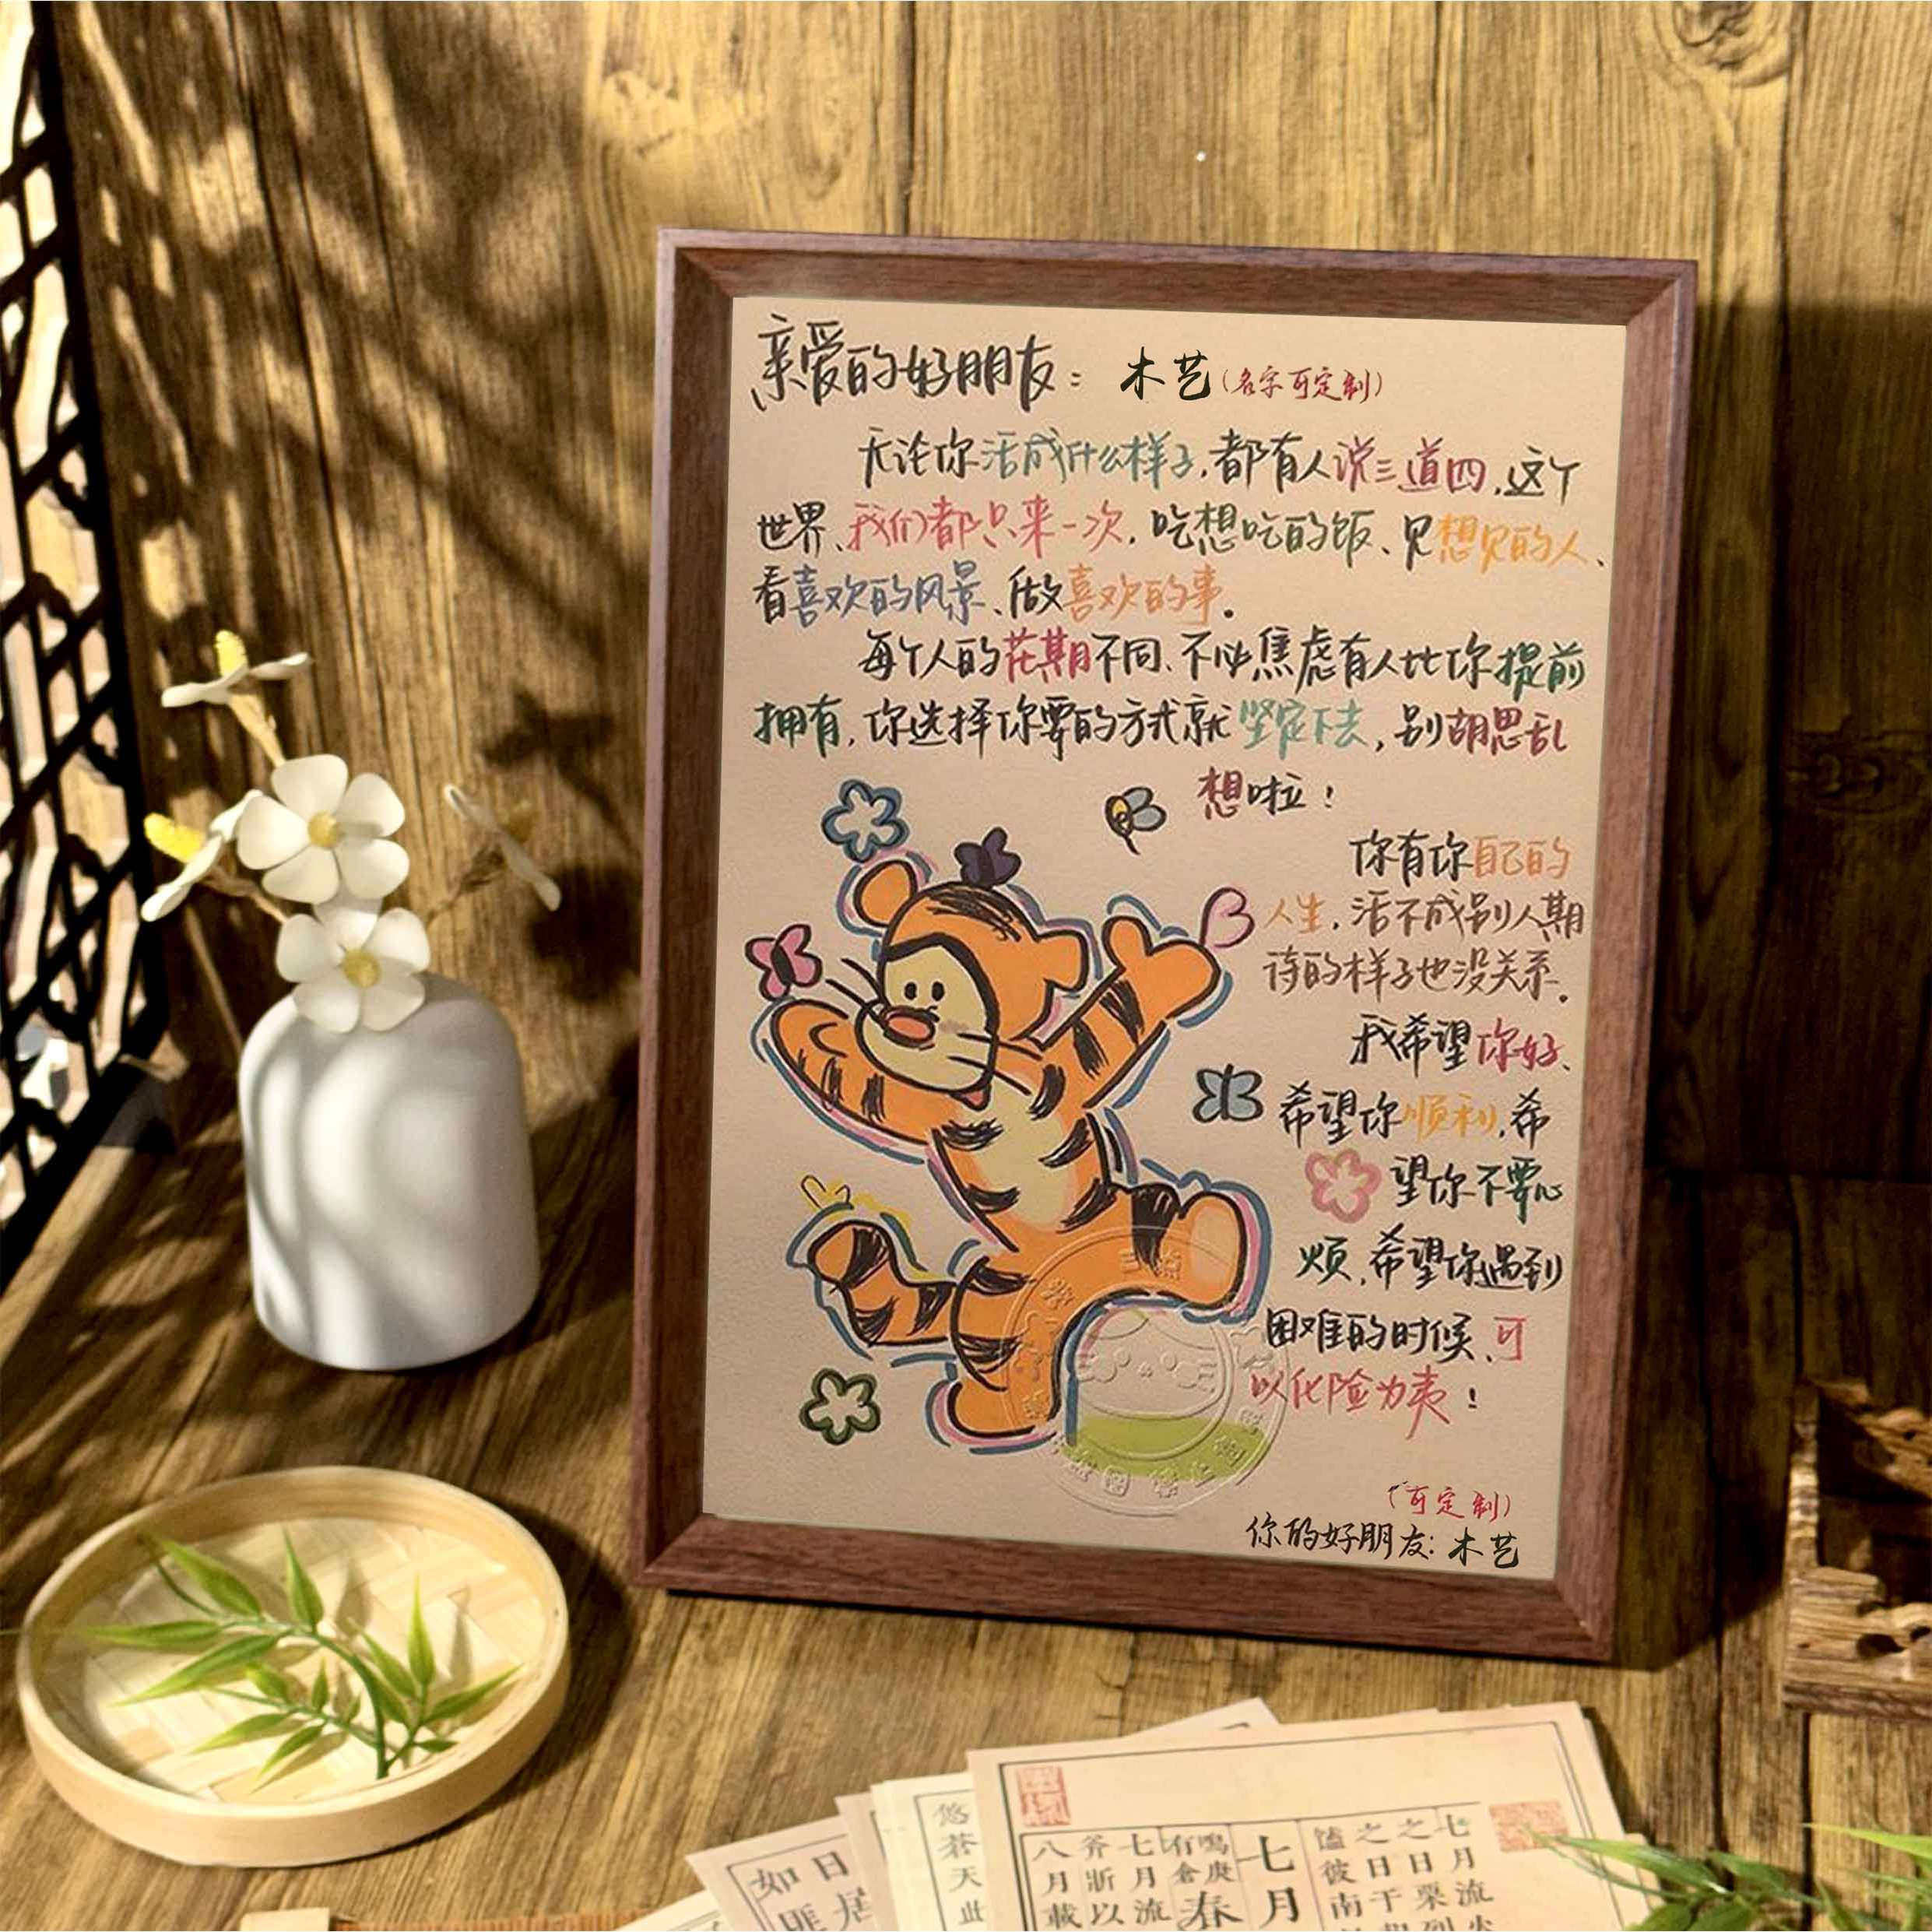 亲爱的好朋友： 木艺（名字可定制）
无论你活成什么样子，都有人说三道四，这个
世界、我们都只来一次，吃想吃的饭、见想见的人、
看喜欢的风景、做喜欢的事。
每个人的花期不同、不必焦虑有人比你提前
拥有，你选择你要的方式就坚定下去，别胡思乱
想啦！
你有你自己的
人生，活不成别人期
待的样子也没关系。
我希望你好、
希望你顺利，希
望你不要心
烦，希望你遇到
困难的时候、可
以化险为夷！
（可定制）
你的好朋友：木艺
七月流
之日栗
之日于
馌彼南
七月
鳴庚
有倉春
七月流
斧斨以
八月載
悠蒼天此
日居
如匪